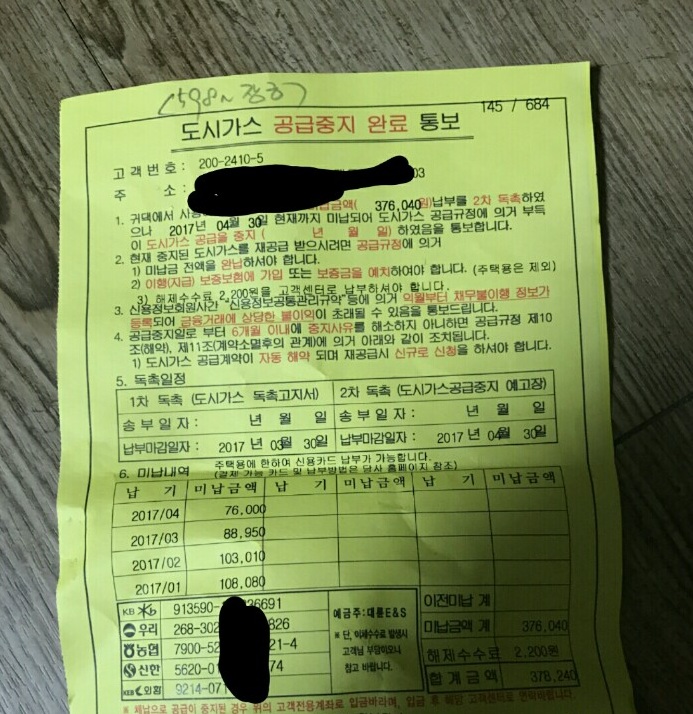 145 / 684
도시가스 공급중지 완료 통보
고객번호 : 200-2410-5
주 소 : 03
1. 귀댁에서 금액( 376,040원)납부를 2차 독촉하였
으나 2017년 04월 30일 현재까지 미납되어 도시가스 공급규정에 의거 부득
이 도시가스 공급을 중지 ( 년 월 일) 하였음을 통보합니다.
2. 현재 중지된 도시가스를 재공급 받으시려면 공급규정에 의거
1) 미납금 전액을 완납하셔야 합니다.
2) 이행(지급) 보증보험에 가입 또는 보증금을 예치하여야 합니다. (주택용은 제외)
3) 해제수수료 2,200원을 고객센터로 납부하셔야 합니다.
3. 신용정보회원사간 "신용정보공동관리규약" 등에 의거 익월부터 채무불이행 정보가
등록되어 금융거래에 상당한 불이익이 초래될 수 있음을 통보드립니다.
4. 공급중지일로 부터 6개월 이내에 중지사유를 해소하지 아니하면 공급규정 제10
조(해약), 제11조(계약소멸후의 관계)에 의거 이래와 같이 조치됩니다.
1) 도시가스 공급계약이 자동 해약 되며 재공급시 신규로 신청을 하셔야 합니다.
5. 독촉일정
1차 독촉 (도시가스 독촉고지서) 2차 독촉 (도시가스공급중지 예고장)
송부일자 : 년 월 일 송부일자 : 년 월 일
납부마감일자 : 2017 년 03월 30일 납부마감일자 : 2017 년 04월 30일
주택용에 한하여 신용카드 납부가 가능합니다.
6. 미납내역 (결제 가능 카드 및 납부방법은 당사 홈페이지 참조)
납 기 미납금액 납 기 미납금액 납 기 미납금액
2017/04 76,000
2017/03 88,950
2017/02 103,010
2017/01 108,080
KB 913590- 26691
우리 268-302 826
농협 7900-52 21-4
신한 5620-0 74
KEB 외환 9214-07
예금주:대륜E&S
※ 단, 이체수수료 발생시
고객님 부담이오니
참고 바랍니다.
이전미납 계
미납금액 계 376,040
해제수수료 2,200원
합계금액 378,240
※ 체납으로 공급이 중지된 경우 위의 고객전용계좌로 입금바라며, 입금 후 해당 고객센터로 연락바랍니다.